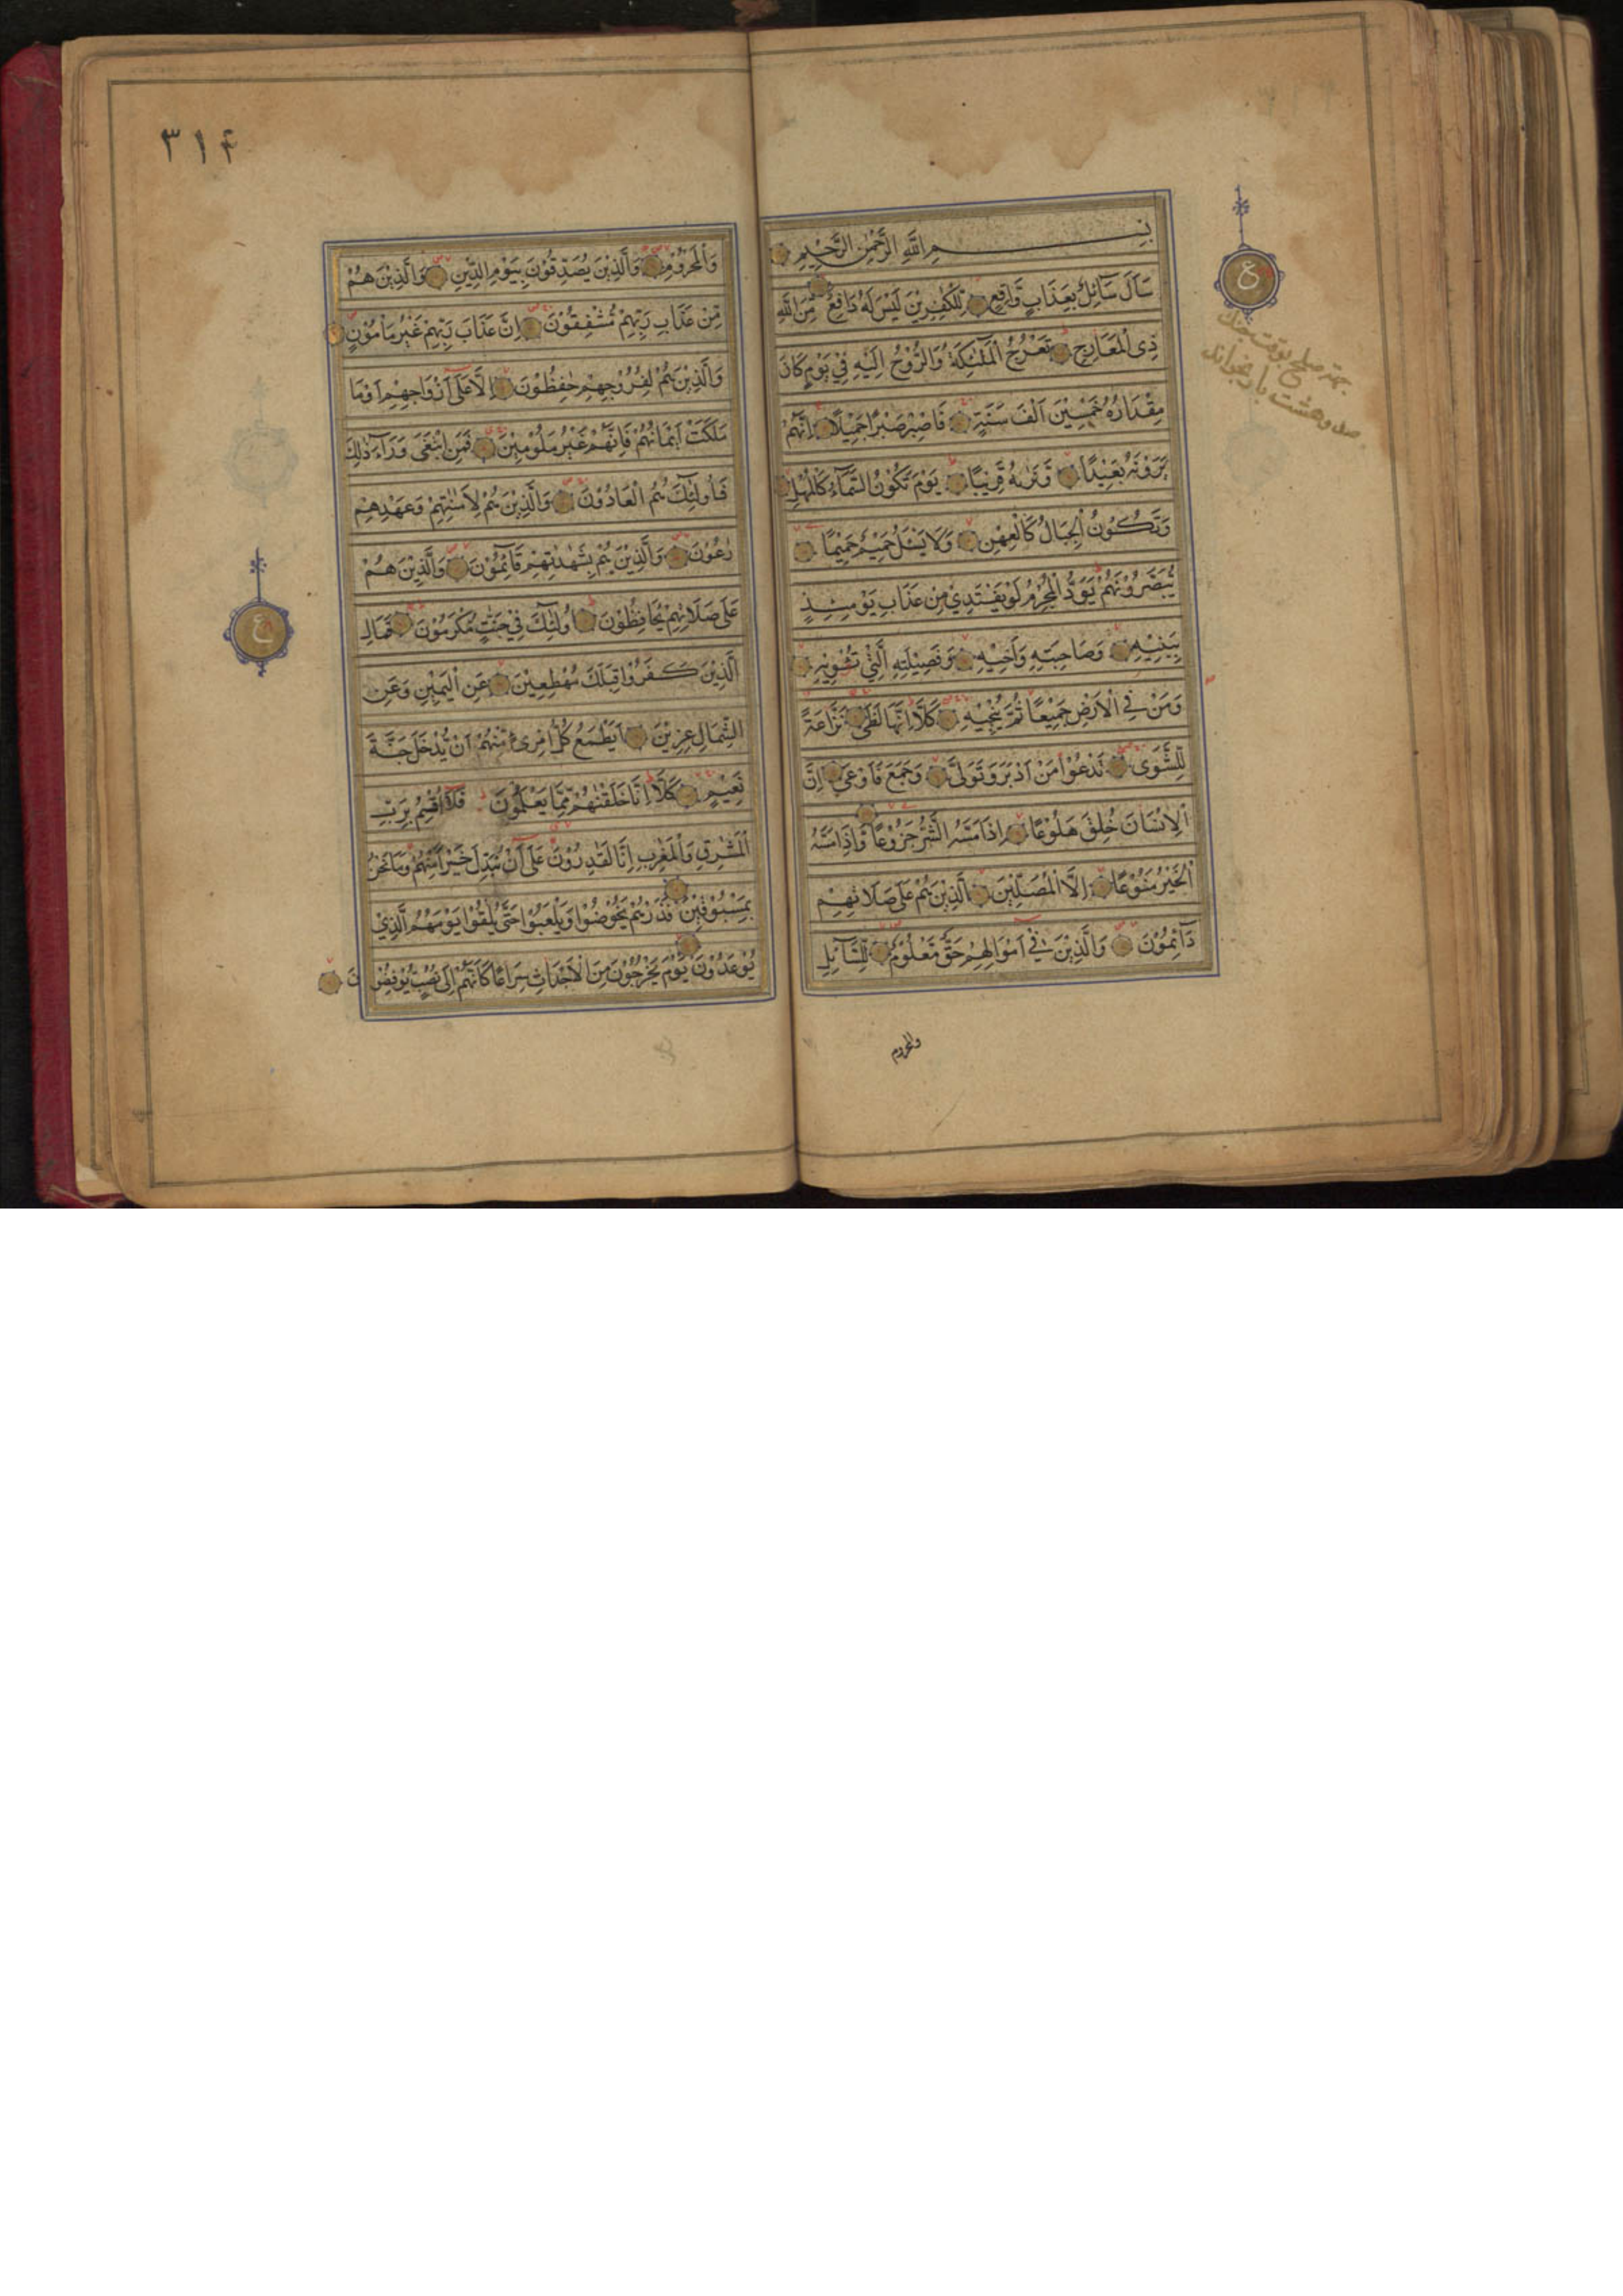 بِسْمِ اللَّهِ الرَّحْمٰنِ الرَّحِيْمِ
سَاَلَ سَآئِلٌۢ بِعَذَابٍ وَّاقِعٍ لِّلْكٰفِرِيْنَ لَيْسَ لَهُ دَافِعٌ مِّنَ اللّٰهِ
ذِى الْمَعَارِجِ تَعْرُجُ الْمَلٰٓئِكَةُ وَالرُّوْحُ اِلَيْهِ فِيْ يَوْمٍ كَانَ
مِقْدَارُهُ خَمْسِيْنَ اَلْفَ سَنَةٍ فَاصْبِرْ صَبْرًا جَمِيْلًا اِنَّهُمْ
يَرَوْنَهُ بَعِيْدًا وَّنَرٰىهُ قَرِيْبًا يَوْمَ تَكُوْنُ السَّمَآءُ كَالْمُهْلِ
وَتَكُوْنُ الْجِبَالُ كَالْعِهْنِ وَلَا يَسْئَلُ حَمِيْمٌ حَمِيْمًا
يُّبَصَّرُوْنَهُمْ يَوَدُّ الْمُجْرِمُ لَوْ يَفْتَدِيْ مِنْ عَذَابِ يَوْمِئِذٍ
بِبَنِيْهِ وَصَاحِبَتِهِ وَاَخِيْهِ وَفَصِيْلَتِهِ الَّتِيْ تُـْٔوِيْهِ
وَمَنْ فِي الْاَرْضِ جَمِيْعًا ثُمَّ يُنْجِيْهِ كَلَّا اِنَّهَا لَظٰى نَزَّاعَةً
لِّلشَّوٰى تَدْعُوْا مَنْ اَدْبَرَ وَتَوَلّٰى وَجَمَعَ فَاَوْعٰى اِنَّ
الْاِنْسَانَ خُلِقَ هَلُوْعًا اِذَا مَسَّهُ الشَّرُّ جَزُوْعًا وَّاِذَا مَسَّهُ
الْخَيْرُ مَنُوْعًا اِلَّا الْمُصَلِّيْنَ الَّذِيْنَ هُمْ عَلٰى صَلَاتِهِمْ
دَآئِمُوْنَ وَالَّذِيْنَ فِيْ اَمْوَالِهِمْ حَقٌّ مَّعْلُوْمٌ لِّلسَّآئِلِ
والمحروم
ع
بجهة صلح بوقت جنك
صد و هشت بار بخواند
٣١۴
وَالْمَحْرُوْمِ وَالَّذِيْنَ يُصَدِّقُوْنَ بِيَوْمِ الدِّيْنِ وَالَّذِيْنَ هُمْ
مِّنْ عَذَابِ رَبِّهِمْ مُّشْفِقُوْنَ اِنَّ عَذَابَ رَبِّهِمْ غَيْرُ مَاْمُوْنٍ
وَالَّذِيْنَ هُمْ لِفُرُوْجِهِمْ حٰفِظُوْنَ اِلَّا عَلٰى اَزْوَاجِهِمْ اَوْ مَا
مَلَكَتْ اَيْمَانُهُمْ فَاِنَّهُمْ غَيْرُ مَلُوْمِيْنَ فَمَنِ ابْتَغٰى وَرَآءَ ذٰلِكَ
فَاُولٰٓئِكَ هُمُ الْعَادُوْنَ وَالَّذِيْنَ هُمْ لِاَمٰنٰتِهِمْ وَعَهْدِهِمْ
رٰعُوْنَ وَالَّذِيْنَ هُمْ بِشَهٰدٰتِهِمْ قَآئِمُوْنَ وَالَّذِيْنَ هُمْ
عَلٰى صَلَاتِهِمْ يُحَافِظُوْنَ اُولٰٓئِكَ فِيْ جَنّٰتٍ مُّكْرَمُوْنَ فَمَالِ
الَّذِيْنَ كَفَرُوْا قِبَلَكَ مُهْطِعِيْنَ عَنِ الْيَمِيْنِ وَعَنِ
الشِّمَالِ عِزِيْنَ اَيَطْمَعُ كُلُّ امْرِئٍ مِّنْهُمْ اَنْ يُّدْخَلَ جَنَّةَ
نَعِيْمٍ كَلَّا اِنَّا خَلَقْنٰهُمْ مِّمَّا يَعْلَمُوْنَ فَلَا اُقْسِمُ بِرَبِّ
الْمَشٰرِقِ وَالْمَغٰرِبِ اِنَّا لَقٰدِرُوْنَ عَلٰى اَنْ نُّبَدِّلَ خَيْرًا مِّنْهُمْ وَمَا نَحْنُ
بِمَسْبُوْقِيْنَ فَذَرْهُمْ يَخُوْضُوْا وَيَلْعَبُوْا حَتّٰى يُلٰقُوْا يَوْمَهُمُ الَّذِيْ
يُوْعَدُوْنَ يَوْمَ يَخْرُجُوْنَ مِنَ الْاَجْدَاثِ سِرَاعًا كَاَنَّهُمْ اِلٰى نُصُبٍ يُّوْفِضُوْنَ
ع